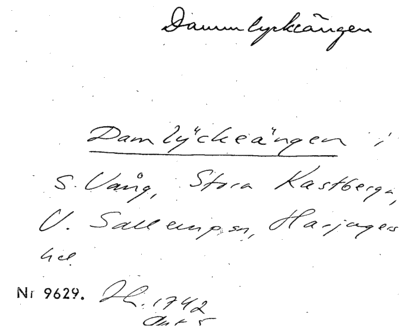 Dammlyckeängen
Damlyckeängen i
S. Vång, Stora Kastberga,
V. Sallerups sn, Harjagers
hd.
Nr 9629. Jb. 1742
Akt 5